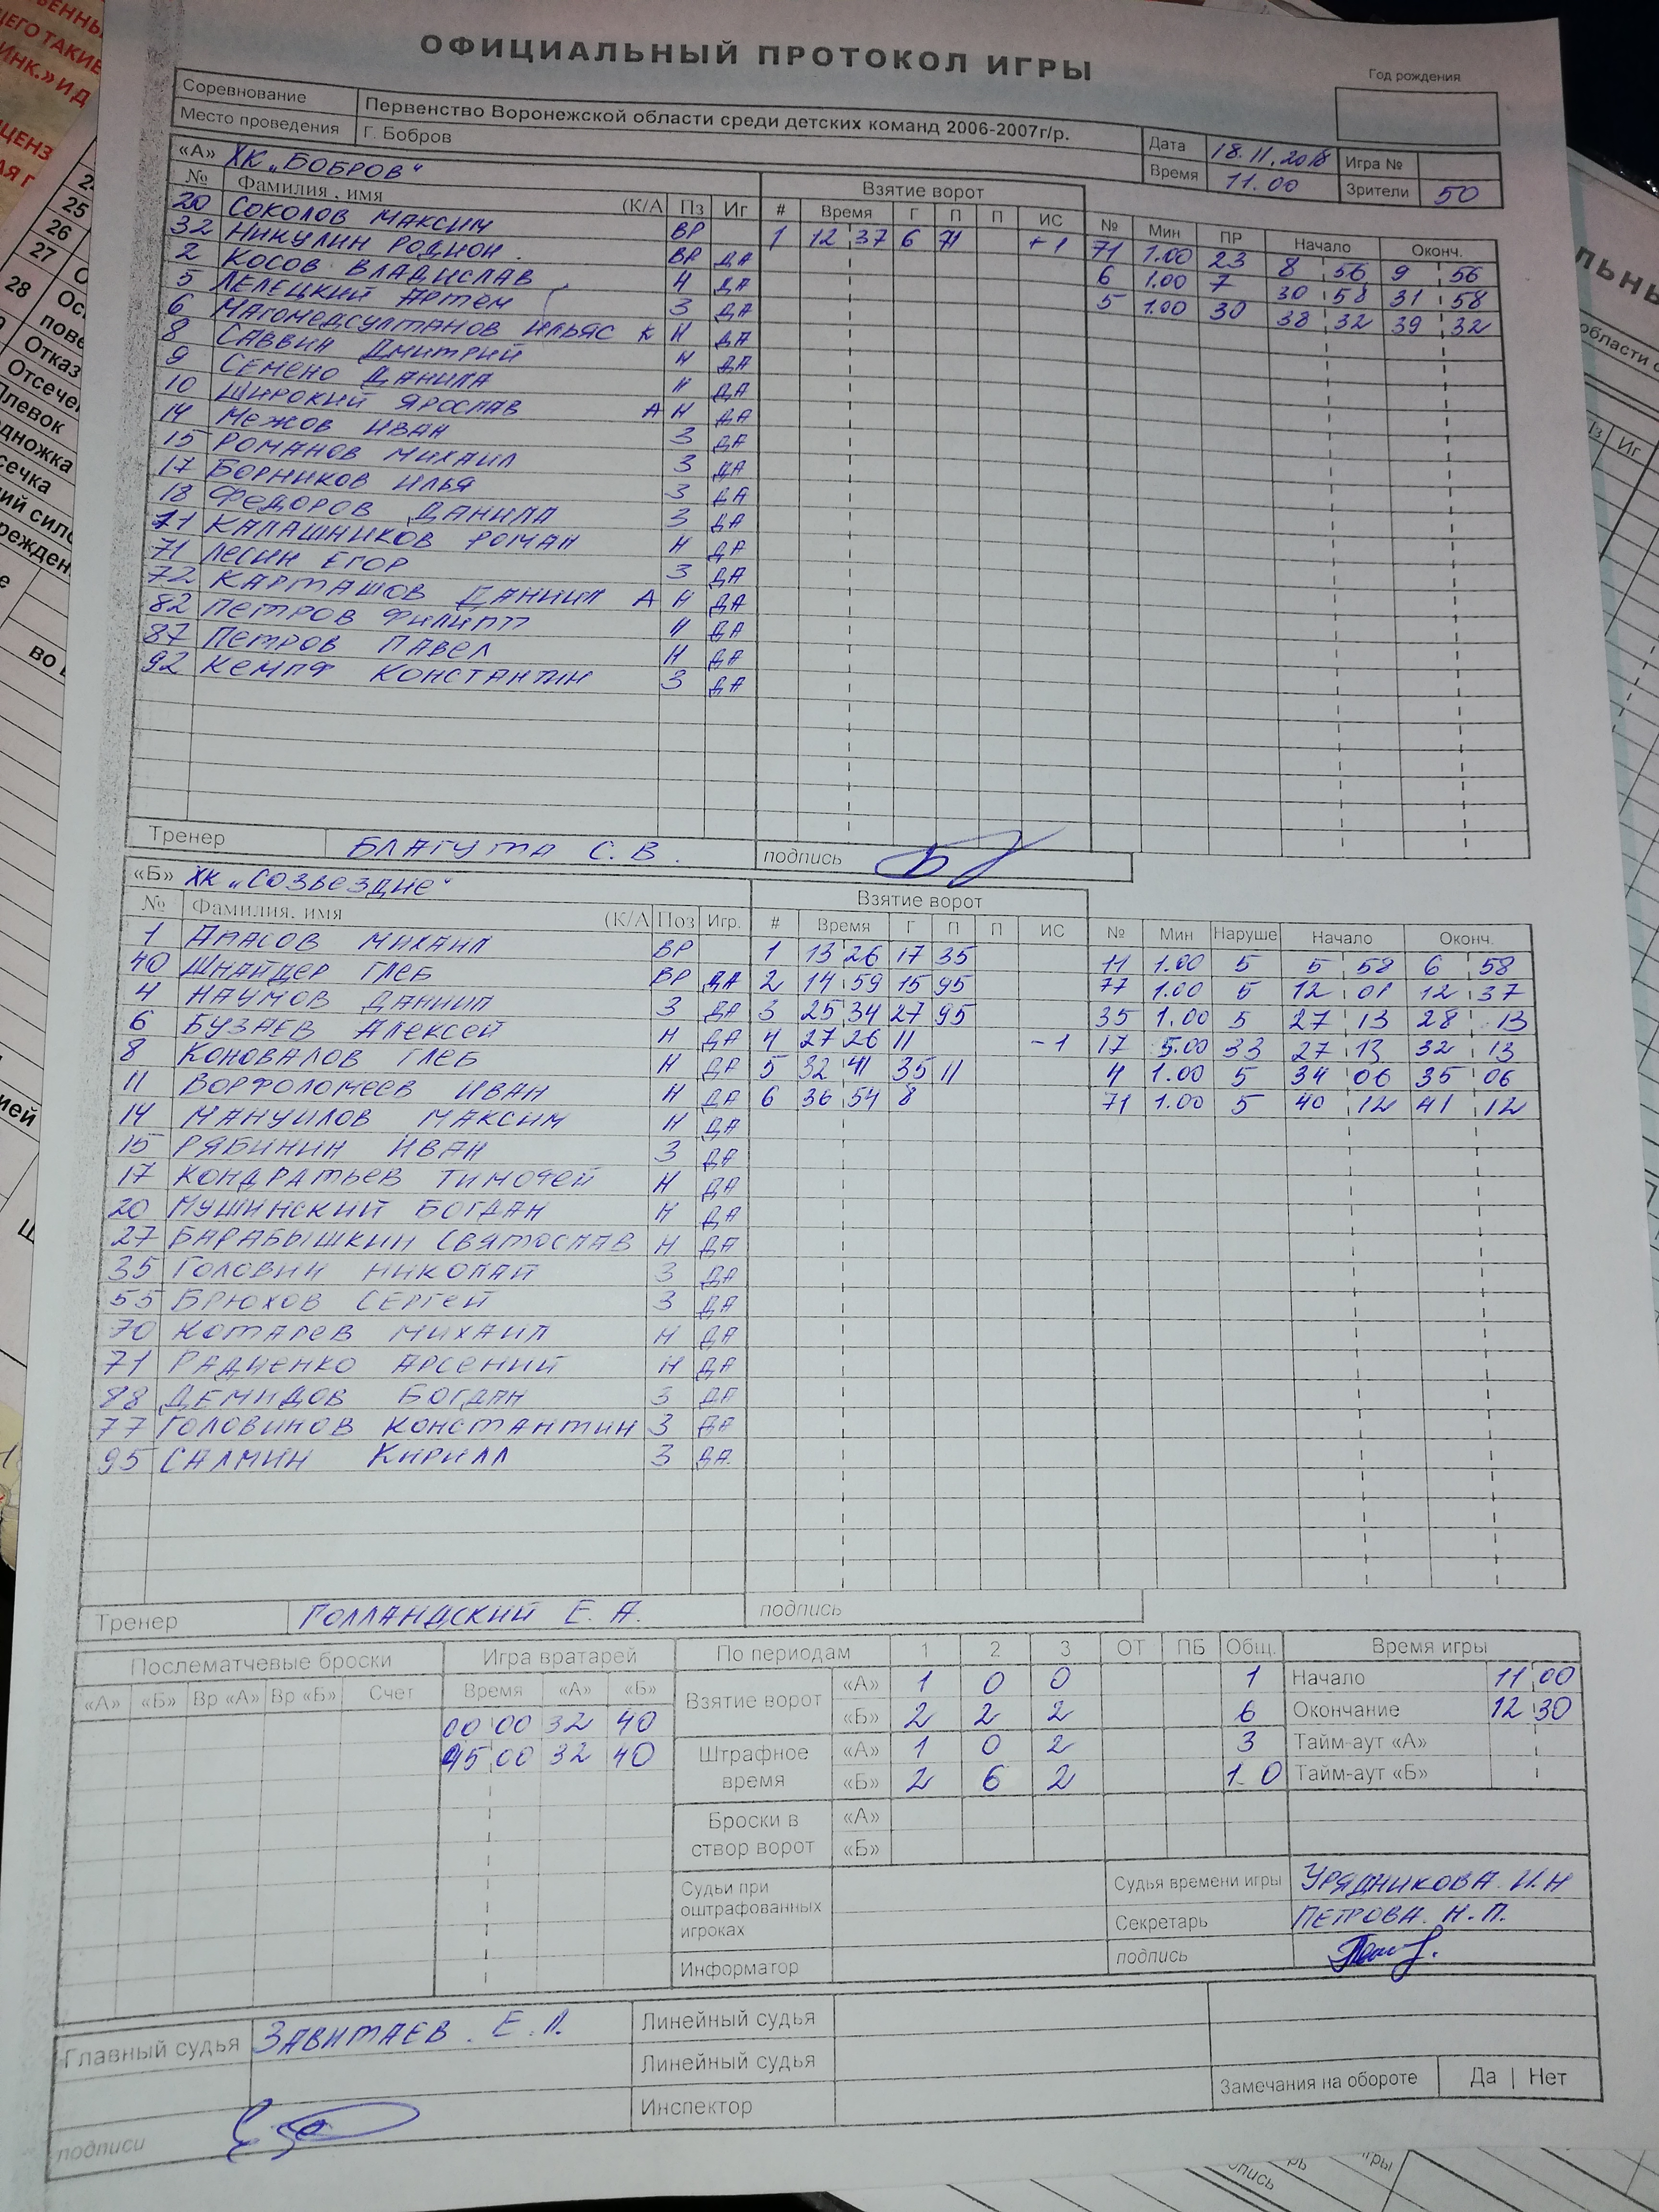 ОФИЦИАЛЬНЫЙ ПРОТОКОЛ ИГРЫ
Год рождения
Соревнование Первенство Воронежской области среди детских команд 2006-2007г/р.
Место проведения Г. Бобров
Дата 18.11.2018 Игра №
Время 11.00 Зрители 50
«А» ХК „БОБРОВ"
Взятие ворот
№ Фамилия, имя (К/А Пз Иг # Время Г П П ИС № Мин ПР Начало Оконч.
20 СОКОЛОВ МАКСИМ ВР 1 12 37 6 71 +1 71 1.00 23 8 56 9 56
32 НИКУЛИН РОДИОН ВР ДА 6 1.00 7 30 58 31 58
2 КОСОВ ВЛАДИСЛАВ Н ДА 5 1.00 30 38 32 39 32
5 ЛЕЛЕЦКИЙ АРТЕМ З ДА
6 МАГОМЕДСУЛТАНОВ ИЛЬЯС К Н ДА
8 САВВИН ДМИТРИЙ Н ДА
9 СЕМЕНО ДАНИЛА Н ДА
10 ШИРОКИЙ ЯРОСЛАВ А Н ДА
14 МЕЖОВ ИВАН З ДА
15 РОМАНОВ МИХАИЛ З ДА
17 БОРНИКОВ ИЛЬЯ З ДА
18 ФЕДОРОВ ДАНИЛА З ДА
КАЛАШНИКОВ РОМАН Н ДА
71 ЛЕСИН ЕГОР З ДА
72 КАРТАШОВ ДАНИИЛ А Н ДА
82 ПЕТРОВ ФИЛИПП Н ДА
87 ПЕТРОВ ПАВЕЛ Н ДА
92 КЕМПФ КОНСТАНТИН З ДА
Тренер БЛАГУТА С.В. подпись
«Б» ХК „СОЗВЕЗДИЕ"
Взятие ворот
№ Фамилия, имя (К/А Поз Игр. # Время Г П П ИС № Мин Наруше Начало Оконч.
1 АПАСОВ МИХАИЛ ВР 1 13 26 17 35 11 1.00 5 5 58 6 58
40 ШНАЙДЕР ГЛЕБ ВР ДА 2 14 59 15 95 77 1.00 5 12 01 12 37
4 НАУМОВ ДАНИИЛ З ДА 3 25 34 27 95 35 1.00 5 27 13 28 13
6 БУЗАЕВ АЛЕКСЕЙ Н ДА 4 27 26 11 -1 17 5.00 33 27 13 32 13
8 КОНОВАЛОВ ГЛЕБ Н ДА 5 32 41 35 11 4 1.00 5 34 06 35 06
11 ВОРФОЛОМЕЕВ ИВАН Н ДА 6 36 54 8 71 1.00 5 40 12 41 12
14 МАНУИЛОВ МАКСИМ Н ДА
15 РЯБИНИН ИВАН З ДА
17 КОНДРАТЬЕВ ТИМОФЕЙ Н ДА
20 МУШИНСКИЙ БОГДАН Н ДА
27 БАРАБЫШКИН СВЯТОСЛАВ Н ДА
35 ГОЛОВИН НИКОЛАЙ З ДА
55 БРЮХОВ СЕРГЕЙ З ДА
70 КОТАРЕВ МИХАИЛ Н ДА
71 РАДЧЕНКО АРСЕНИЙ Н ДА
88 ДЕМИДОВ БОГДАН З ДА
77 ГОЛОВИНОВ КОНСТАНТИН З ДА
95 САЛМИН КИРИЛЛ З ДА
Тренер ГОЛЛАНДСКИЙ Е.А. подпись
Послематчевые броски Игра вратарей По периодам 1 2 3 ОТ ПБ Общ. Время игры
«А» «Б» Вр «А» Вр «Б» Счет Время «А» «Б»
Взятие ворот «А» 1 0 0 1 Начало 11 00
00 00 32 40 «Б» 2 2 2 6 Окончание 12 30
45 00 32 40 Штрафное время «А» 1 0 2 3 Тайм-аут «А»
«Б» 2 6 2 10 Тайм-аут «Б»
Броски в створ ворот «А»
«Б»
Судьи при оштрафованных игроках Судья времени игры УРЯДНИКОВА И.Н
Секретарь ПЕТРОВА Н.П.
Информатор подпись
Главный судья ЗАВИТАЕВ. Е.Л. Линейный судья
Линейный судья
Замечания на обороте Да | Нет
Инспектор
подписи